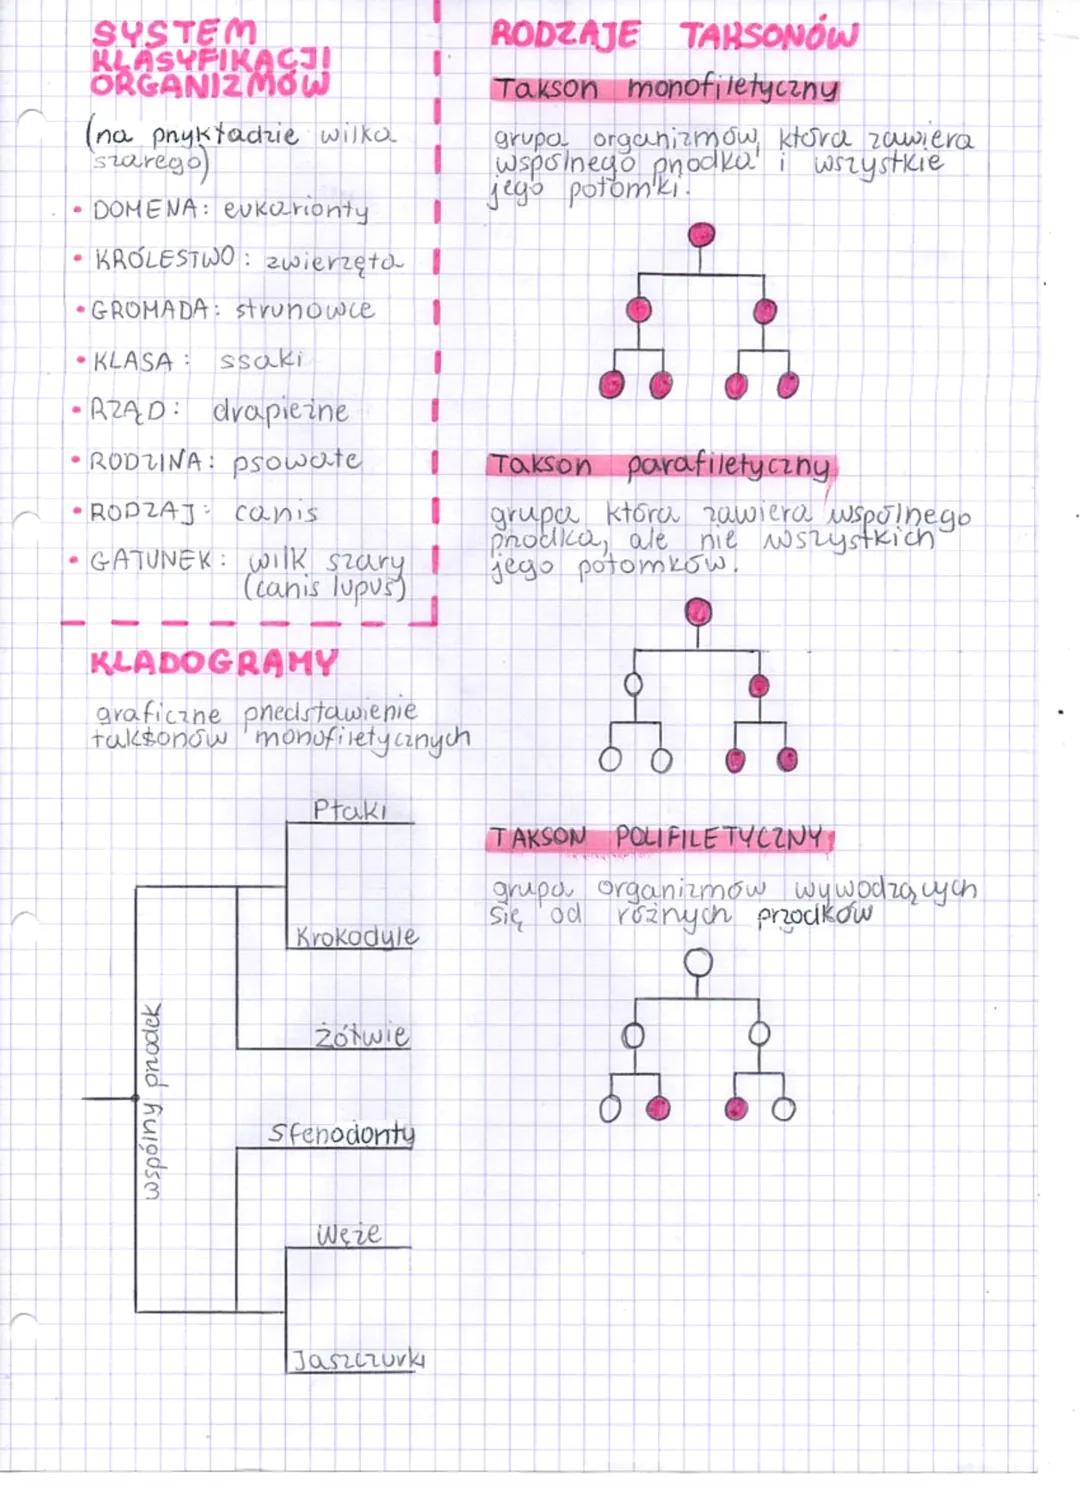 SYSTEM
KLASYFIKACJI
ORGANIZMÓW
(na przykładzie wilka
szarego)
• DOMENA: eukarionty
• KRÓLESTWO: zwierzęta
• GROMADA: strunowce
• KLASA: ssaki
• RZĄD: drapieżne
• RODZINA: psowate
• RODZAJ: canis
• GATUNEK: wilk szary
(canis lupus)
KLADOGRAMY
graficzne przedstawienie
taksonów monofiletycznych
Ptaki
Krokodyle
Żółwie
wspólny przodek
Sfenodonty
Węże
Jaszczurki
RODZAJE TAKSONÓW
Takson monofiletyczny
grupa organizmów, która zawiera
wspólnego przodka i wszystkie
jego potomki.
Takson parafiletyczny
grupa która zawiera wspólnego
przodka, ale nie wszystkich
jego potomków.
TAKSON POLIFILETYCZNY
grupa organizmów wywodzących
się od różnych przodków